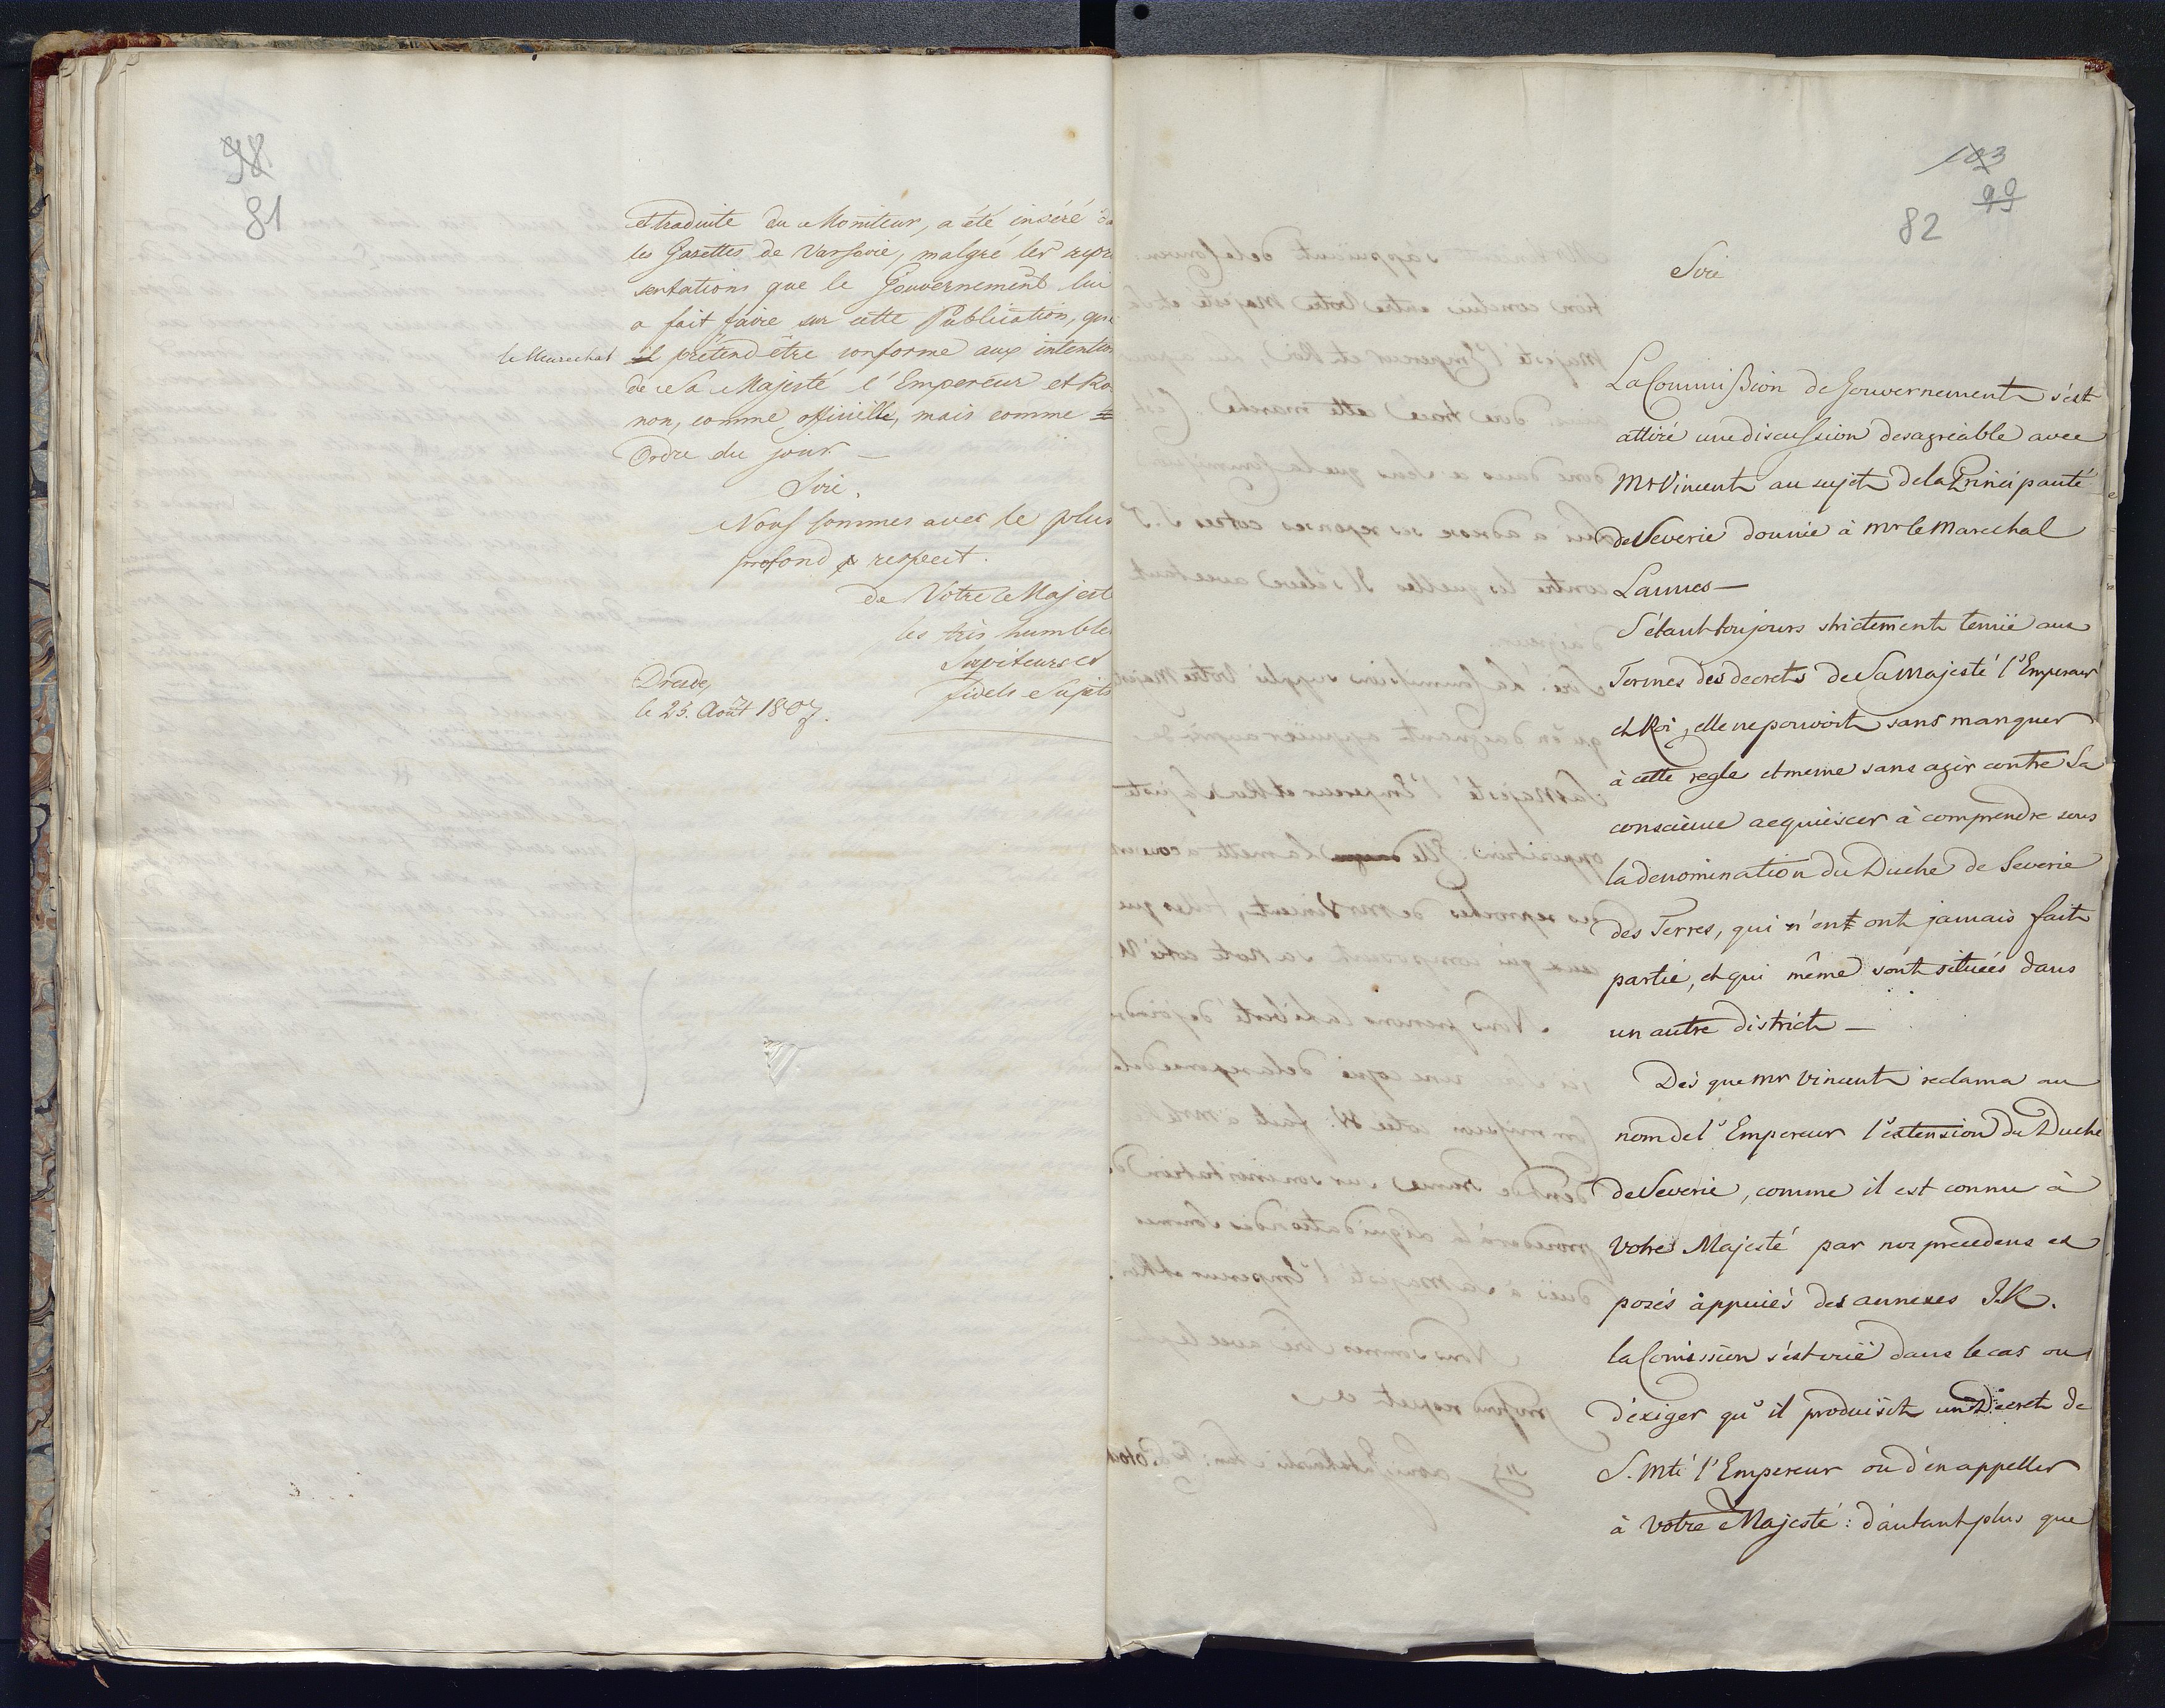 98
81
et traduite du Moniteur, a été inséré da
les Gazettes de Varsovie, malgré les repré
sentations que le Gouvernement lui
a fait faire sur cette Publication, qu
le Marechal il prétend être conforme aux intention
de Sa Majesté l'Empereur et Ro
non, comme officielle, mais comme
Ordre du jour —
Sire,
Nous sommes avec le plus
profond respect.
de Votre Majest
les très humbles
Serviteurs et
fidels Sujets
Dresde,
le 25. Août 1807.
103
99
82
Sire
La Commission de Gouvernement s'est
attiré une discussion desagréable avec
Mr Vincent au sujet de la Principauté
de Severie donnée à mr le Marechal
Lannes —
S'étant toujours strictement tenüe aux
Termes des decrets de Sa Majesté l'Empereur
et Roi, elle ne pouvoit sans manquer
à cette regle et meme sans agir contre Sa
conscience acquiescer à comprendre sous
la denomination du Duché de Severie
des Terres, qui n'ent ont jamais fait
partie, et qui même sont situées dans
un autre district —
Dès que mr Vincent reclama au
nom de l'Empereur l'extension du Duché
de Severie, comme il est connu à
Votre Majesté par nos precedens ex
posés appuiés des annexes J.K.
la Comission s'est vuë dans le cas ou
d'exiger qu'il produisit un Décret de
S. Mté l'Empereur ou d'en appeller
à Votre Majesté: d'autant plus que